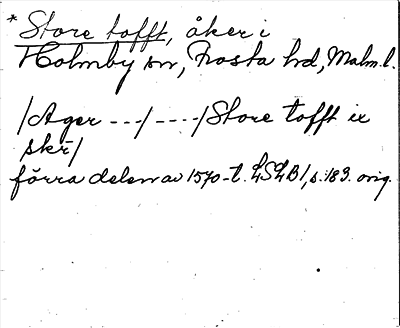 * Store tofft, åker i
Holmby sn, Frosta hd, Malm. l.
/Ager ---/----/Store tofft ix
skr/
förra delen av 1570-t. LSLB1, s. 183. orig.